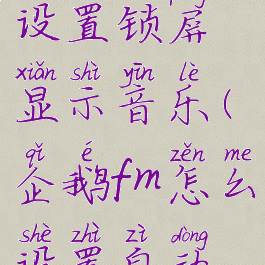 设置锁屏
xiǎn shì yīn lè
显示音乐(
qǐ é zěn me
企鹅fm怎么
shè zhì zì dòng
设置自动